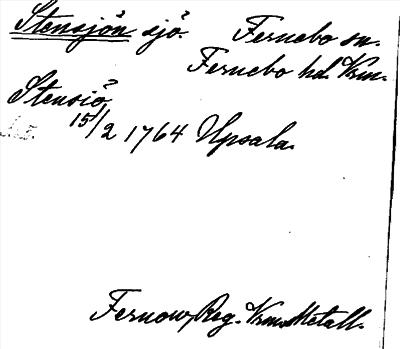 Stensjön sjö. Fernebo sn.
Fernebo hd. Vrm.
Stensiö
15/2 1764 Upsala.
Fernow, Reg. Vrm. Metall.